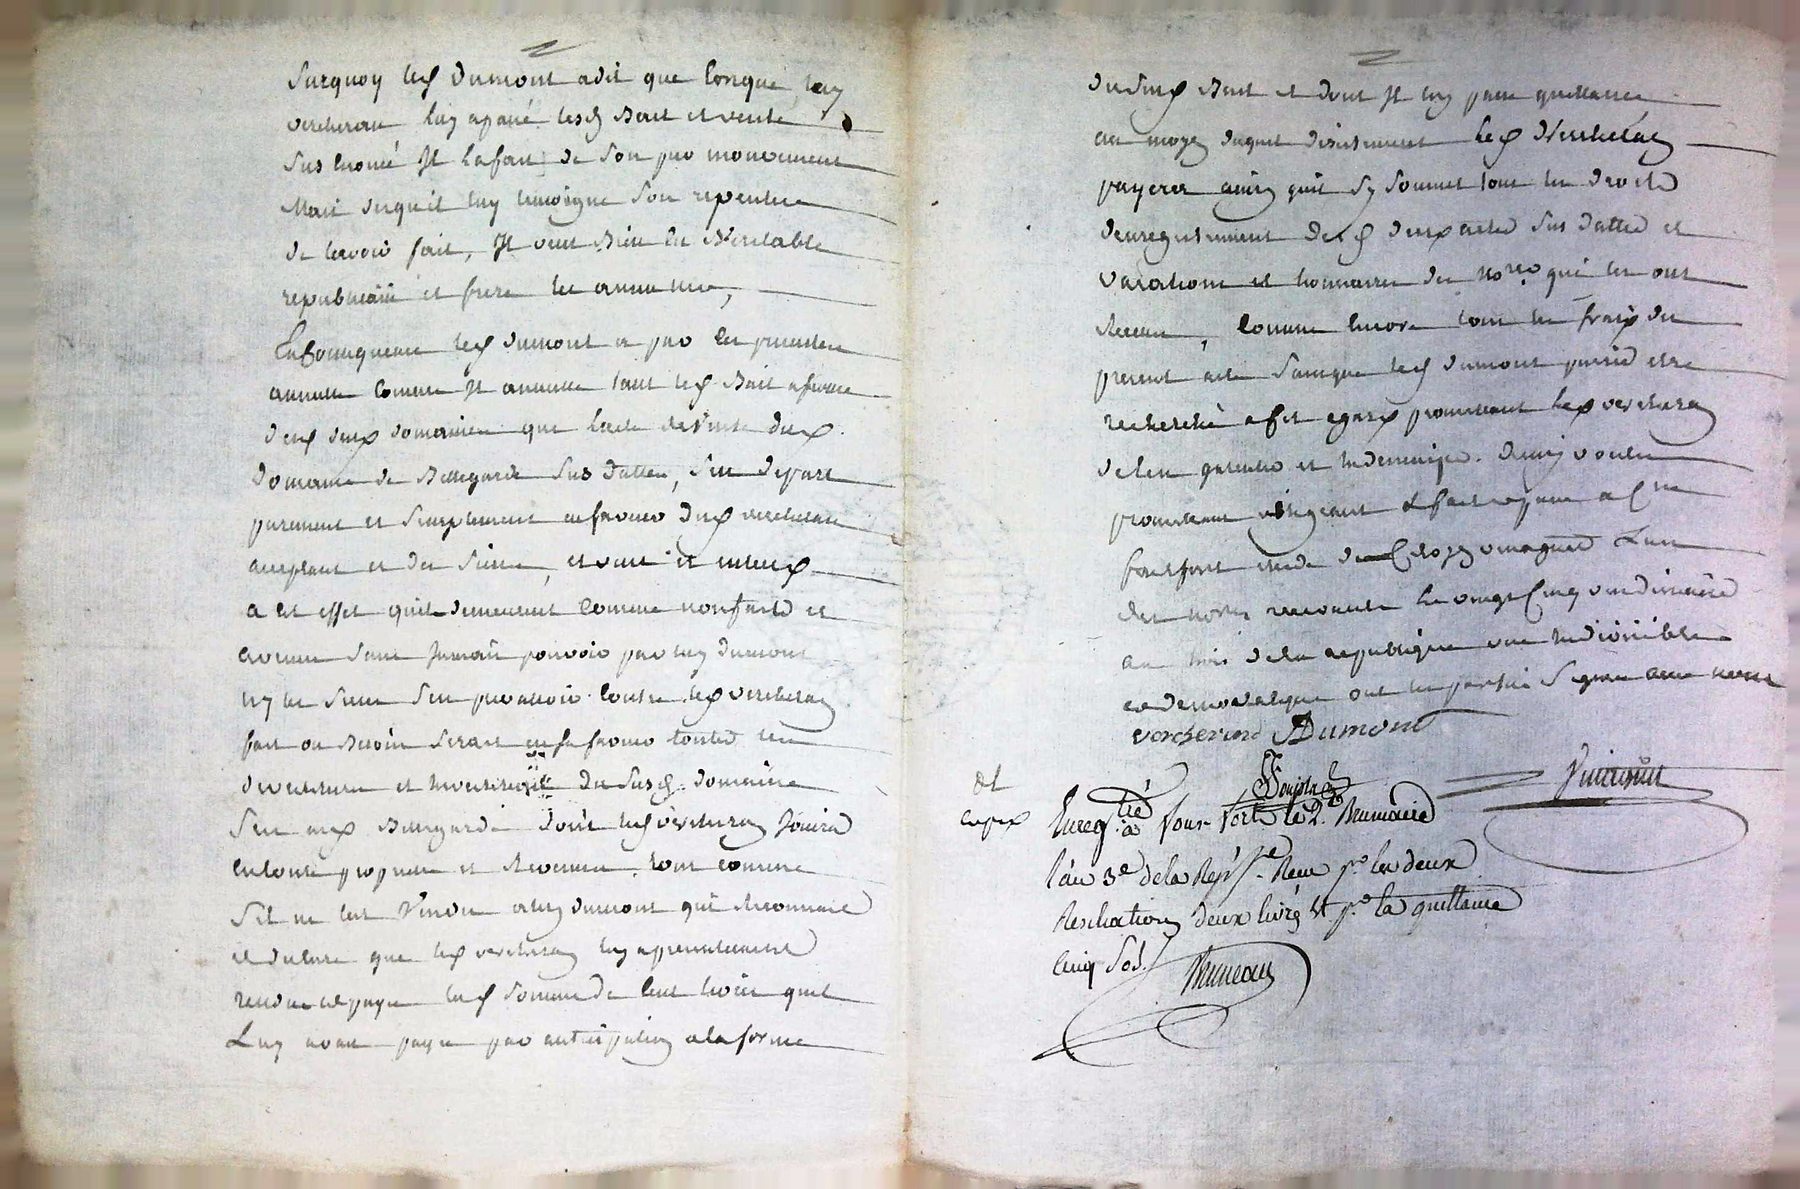 Surquoy led Dumont a dit que lorsque luy
vercherand luy a passé lesd Bail et vente
sus énoncé Il la fait de son pro mouvement
Mais dequil luy temoigne son repentir
de lavoir fait, Il veut Bien en veritable
republicain et frere les annuller,
En Consequence led dumont a par ces presentes
annullé comme Il annulle tant led Bail a ferme
desd deux domaines que lacte de vente dud
domaine de Bellegarde sus datter, sen depart
purement et simplement en faveur dud vercherand
acceptant et des siens, et veut et entend
a cet effet quils demeurent comme non faits et
avenus sans jamais pouvoir par luy dumont
ny les siens sen prevaloir contre led vercherand
fait ou Besoin serait en sa faveur toutes
devestiture et Investiture du susd. domaine
Sur aux Bellegarde dont led vercherand Jouira
en toute propriété et Revenus tout comme
Sil ne leut vendu aluy dumont qui Reconnait
et declare que led vercherand luy a presentement
rendu et payé lad somme de cent livres quil
Luy avait payé par anticipation a la forme
dudit Bail et dont Il luy passe quittance
au moyen duquel desistement led Vercherand
payera ainsi quil sy soumet tous les droits
denregistrement desd deux actes sus dattes et
vacations et honnoraires des Nores qui les ont
Receus, comme encore tous les frais du
present acte sans que led dumont puisse etre
recherché a cet egard promettant led vercherand
de len garentir et Indemniser. Ainsi voulu
promettant obligeant &c fait et passé a
des nores recevants le vingt Cinq vendemiaire
an trois de la republique une Indivisible
et democratique ont les parties Signé avec nous
vercherand Dumont
et
Enregtré à le 2. Brumaire
l'an 3e de la Repe. Reçu pr. les deux
Resiliations deux livres et pr. la quittance
Cinq Sols.
Bruneau